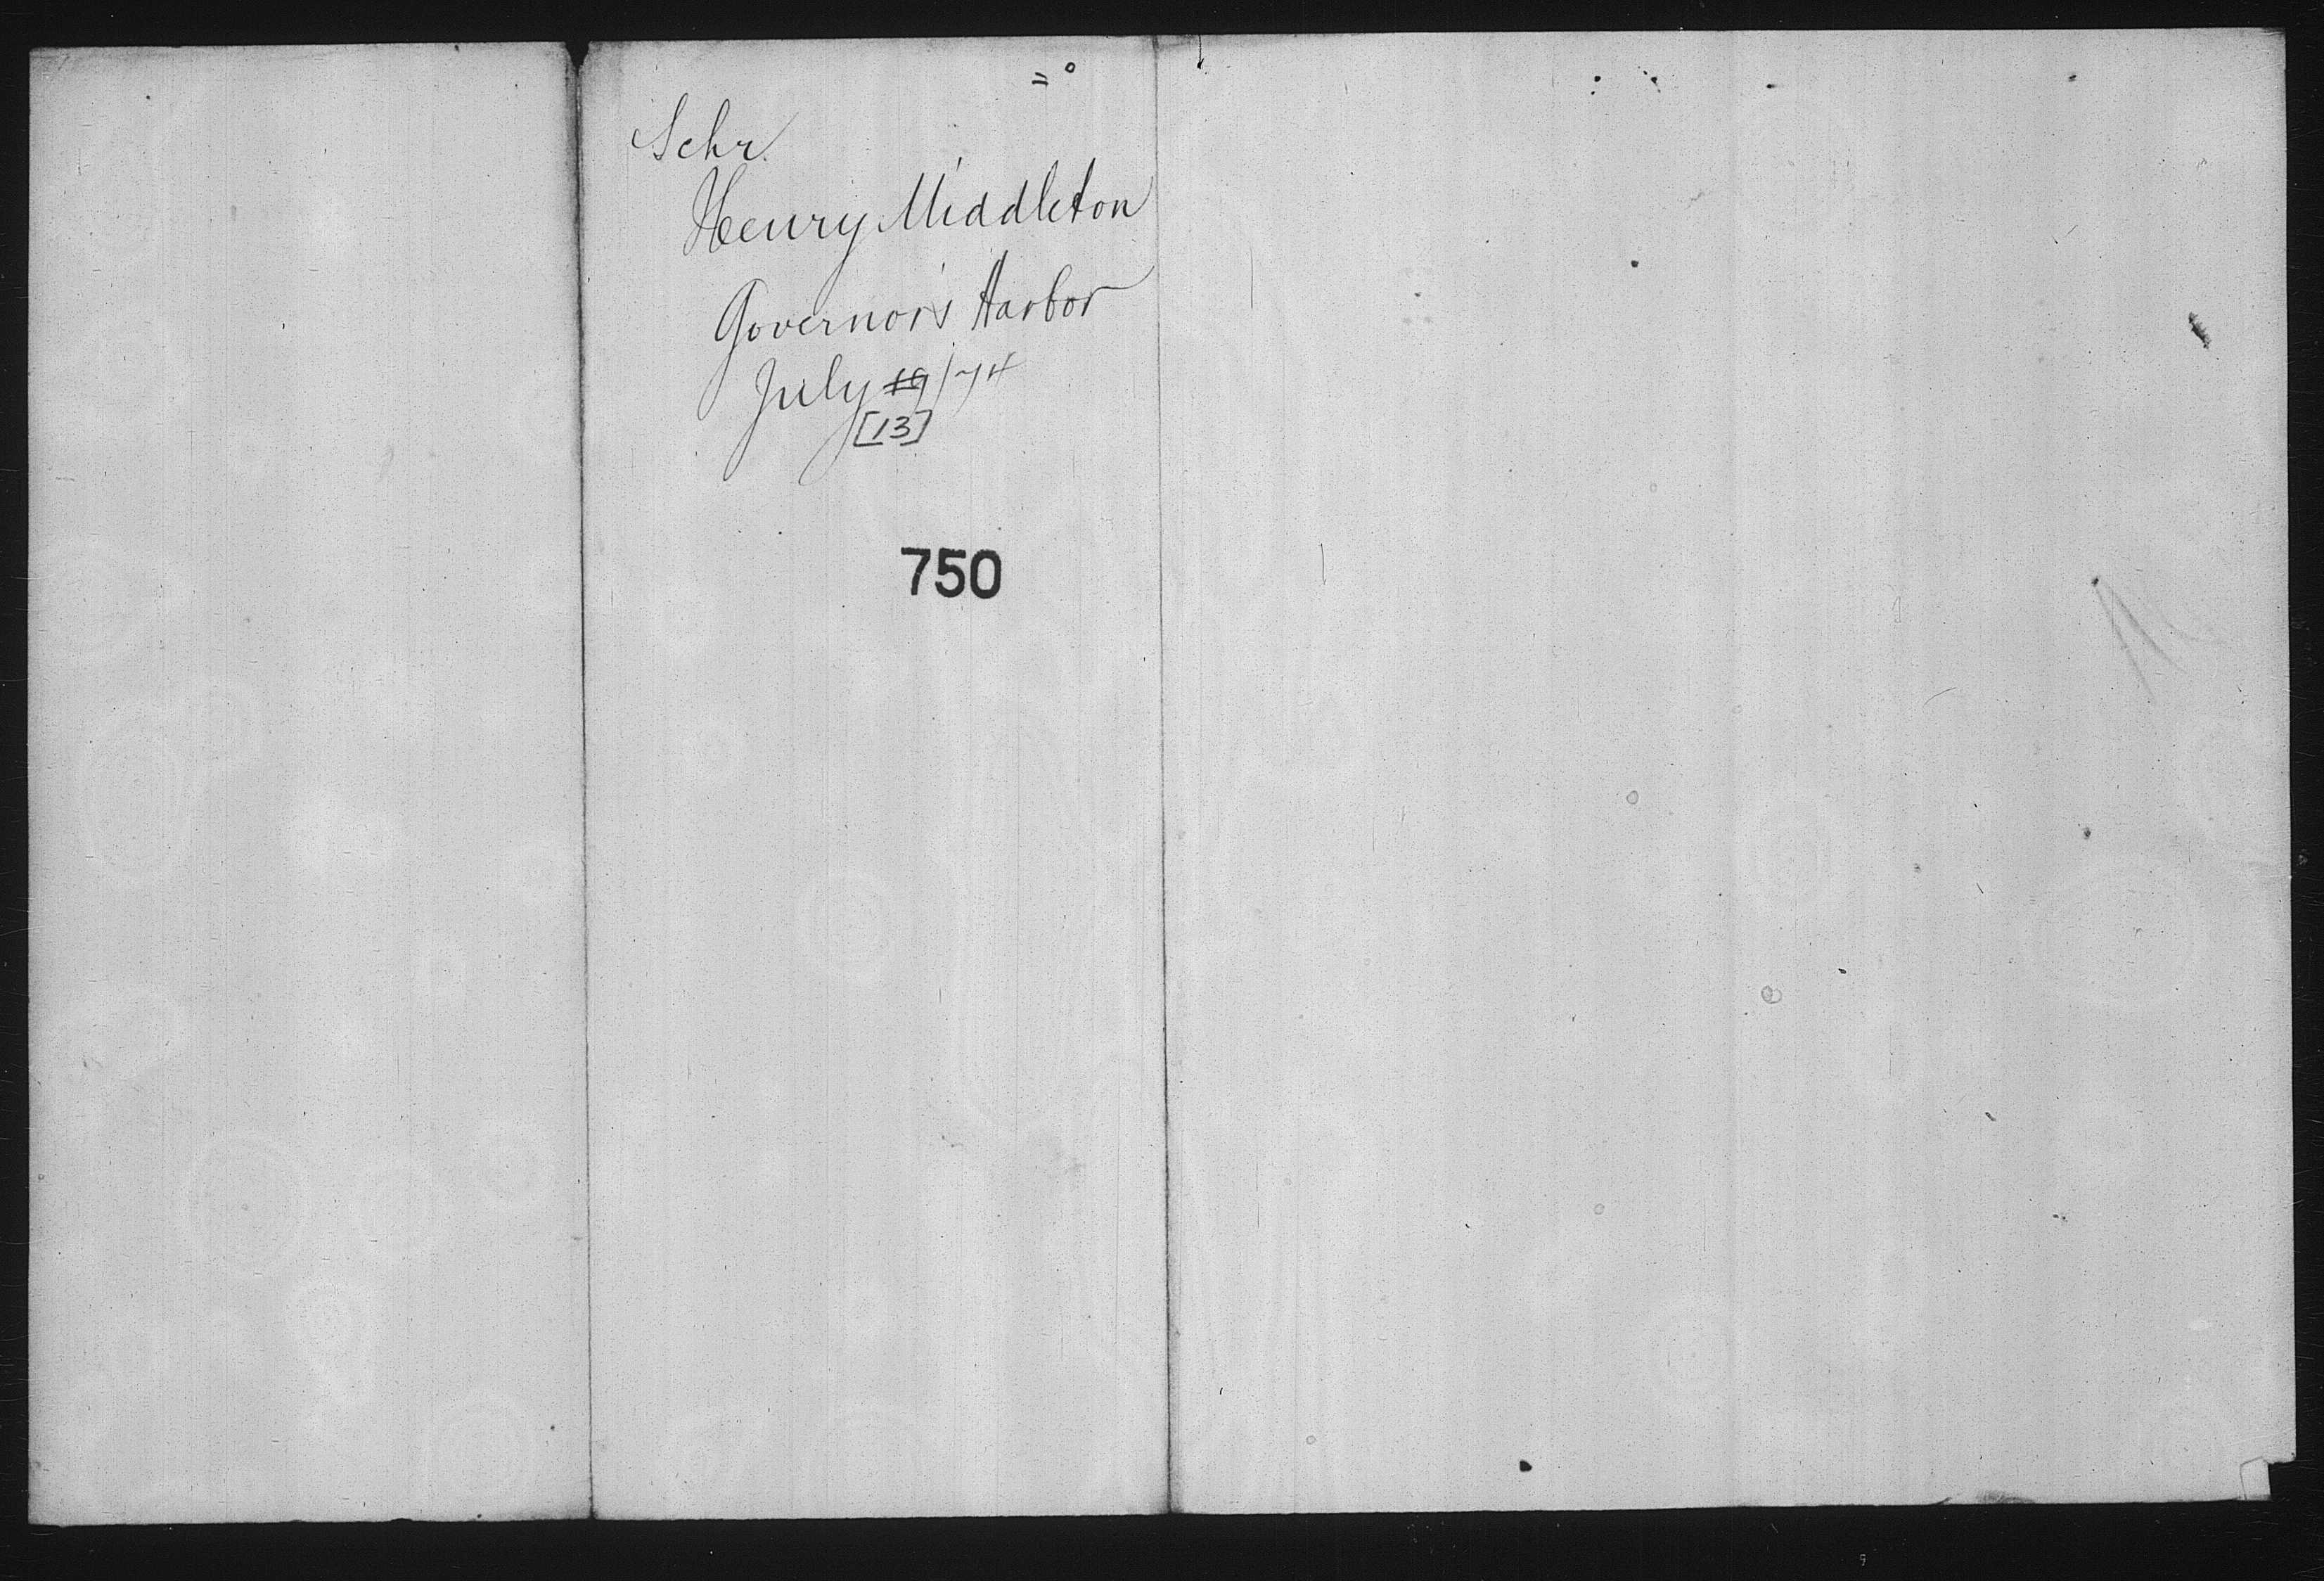 Schr.
Henry Middleton
Governor's Harbor
July 19/74
[13]
750